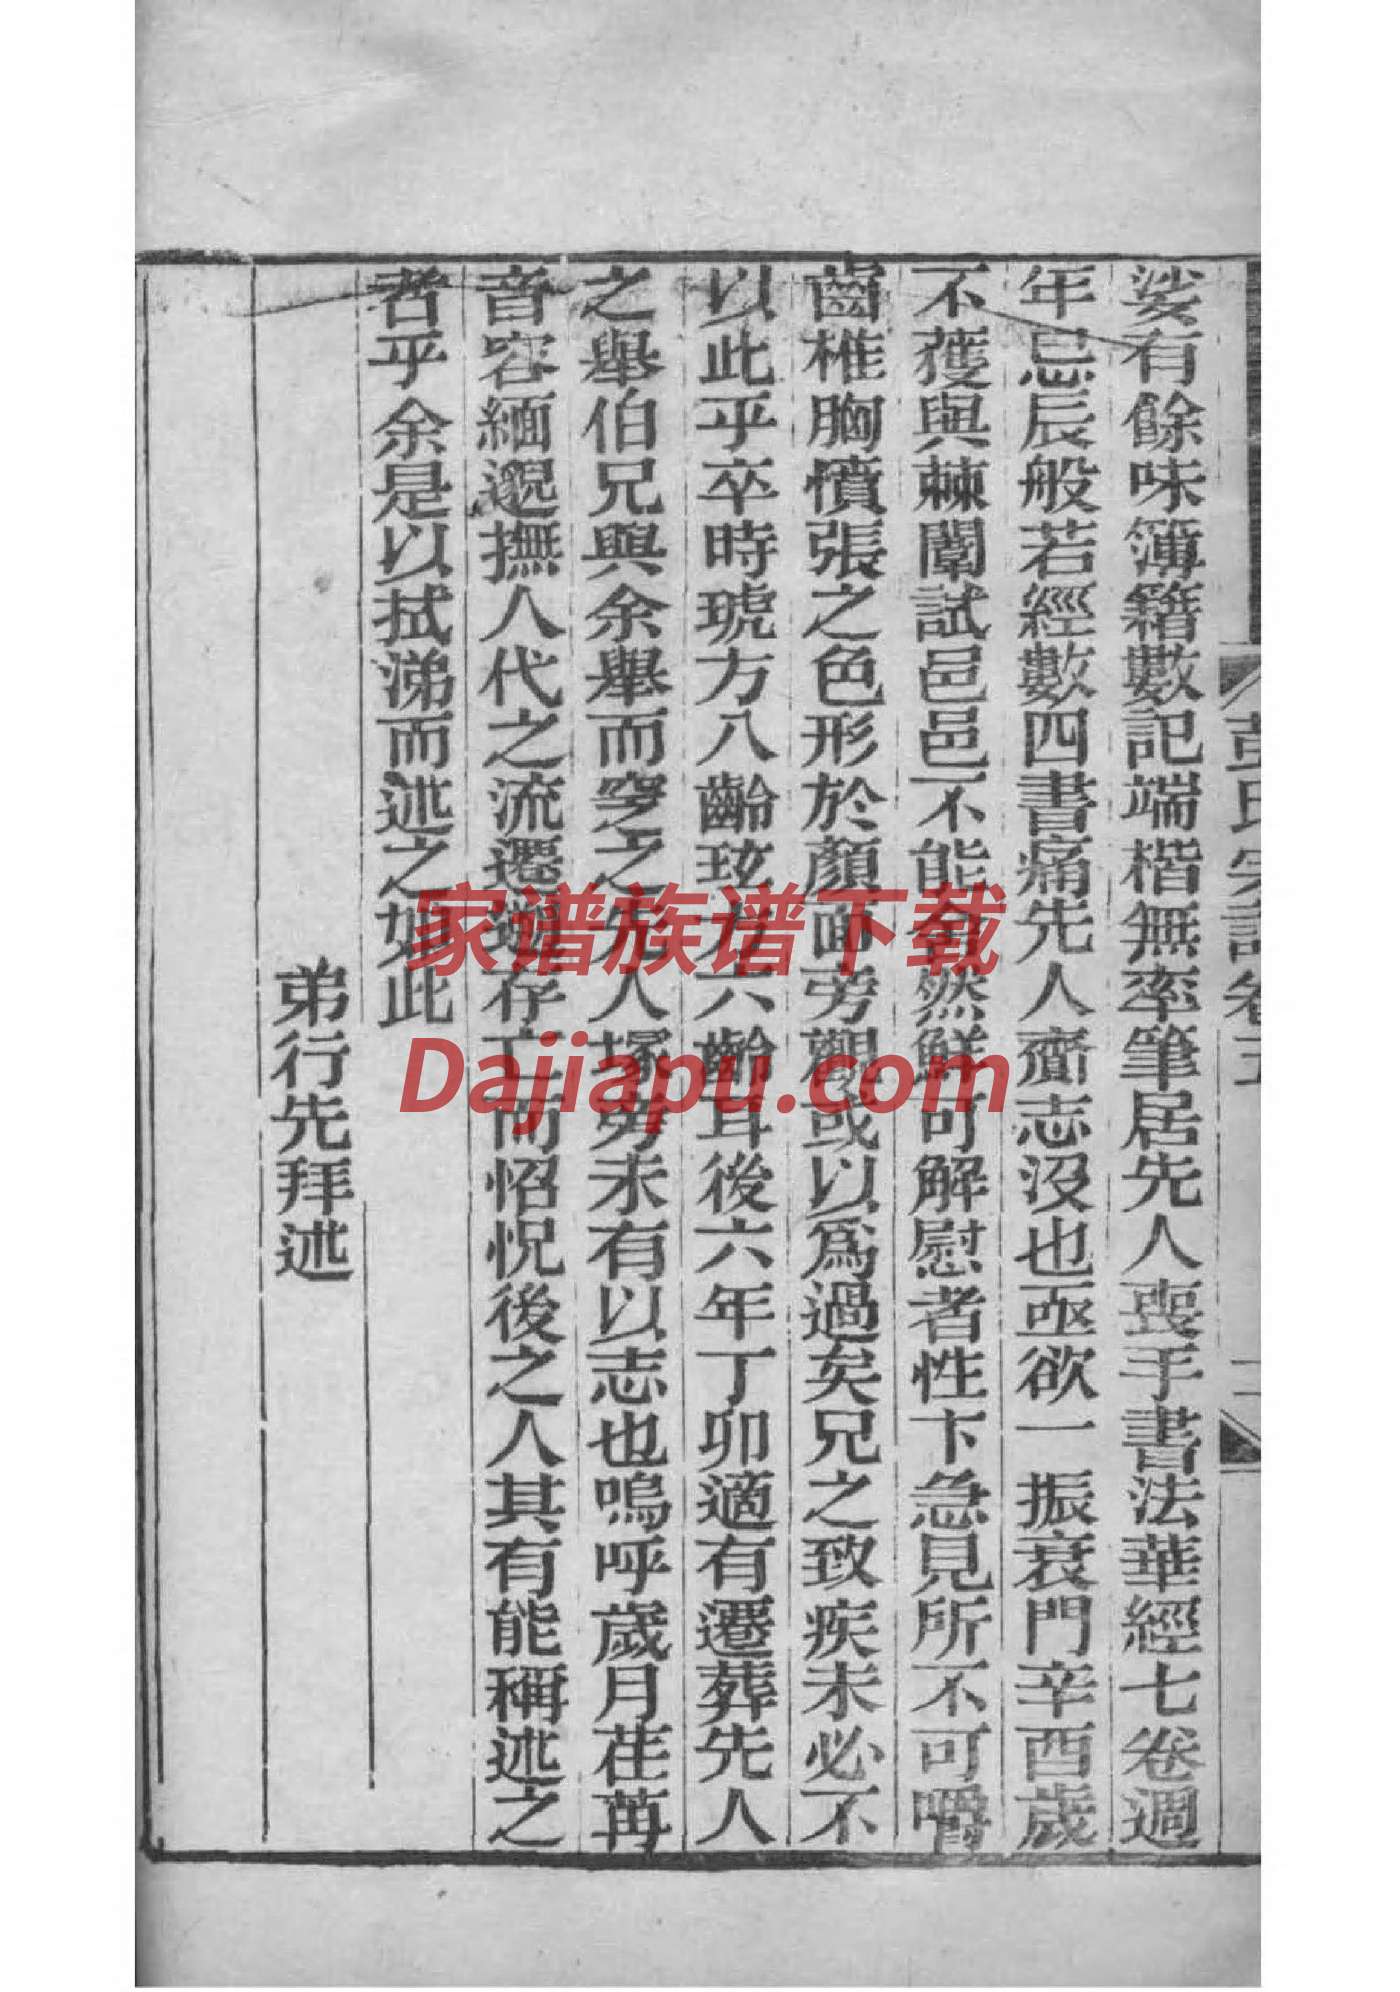 彭氏宗譜卷五
娑有餘味簿籍數記端楷無率筆居先人喪手書法華經七卷週
年忌辰般若經數四書痛先人齎志沒也亟欲一振衰門辛酉歲
不獲與棘闈試邑邑不能全然鮮可解慰者性卞急見所不可嚼
齒椎胸憤張之色形於顏面旁觀或以爲過矣兄之致疾未必不
以此乎卒時琥方八齡玹方六齡耳後六年丁卯適有遷葬先人
之舉伯兄與余舉而窆之先人塚旁未有以志也嗚呼歲月荏苒
音容緬邈撫人代之流遷存亡而怊怳後之人其有能稱述之
者乎余是以拭涕而述之如此
弟行先拜述
家谱族谱下载
Dajiapu.com